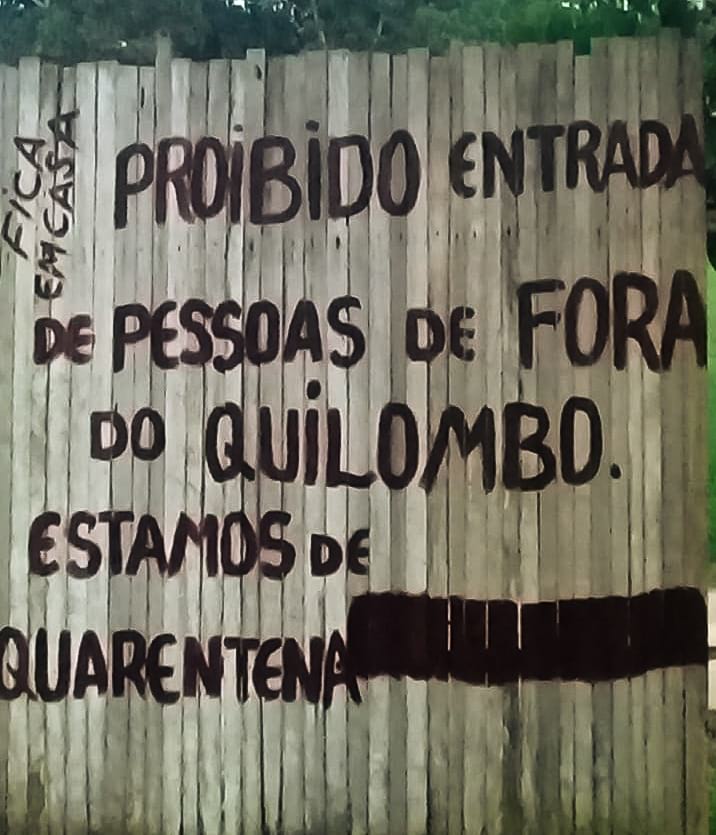 FICA
EM CASA
PROIBIDO ENTRADA
DE PESSOAS DE FORA
DO QUILOMBO.
ESTAMOS DE
QUARENTENA